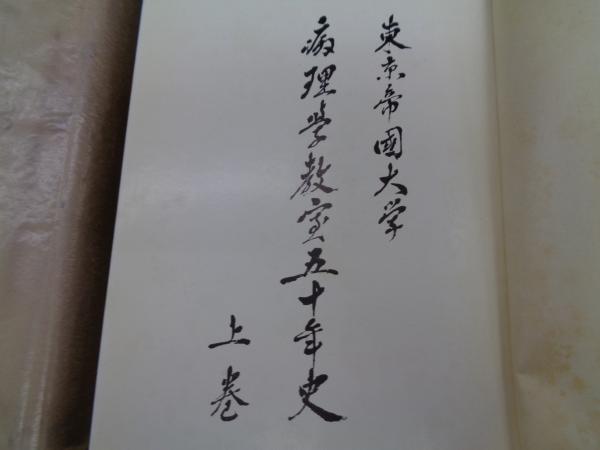 東京帝國大学
病理学教室五十年史
上巻